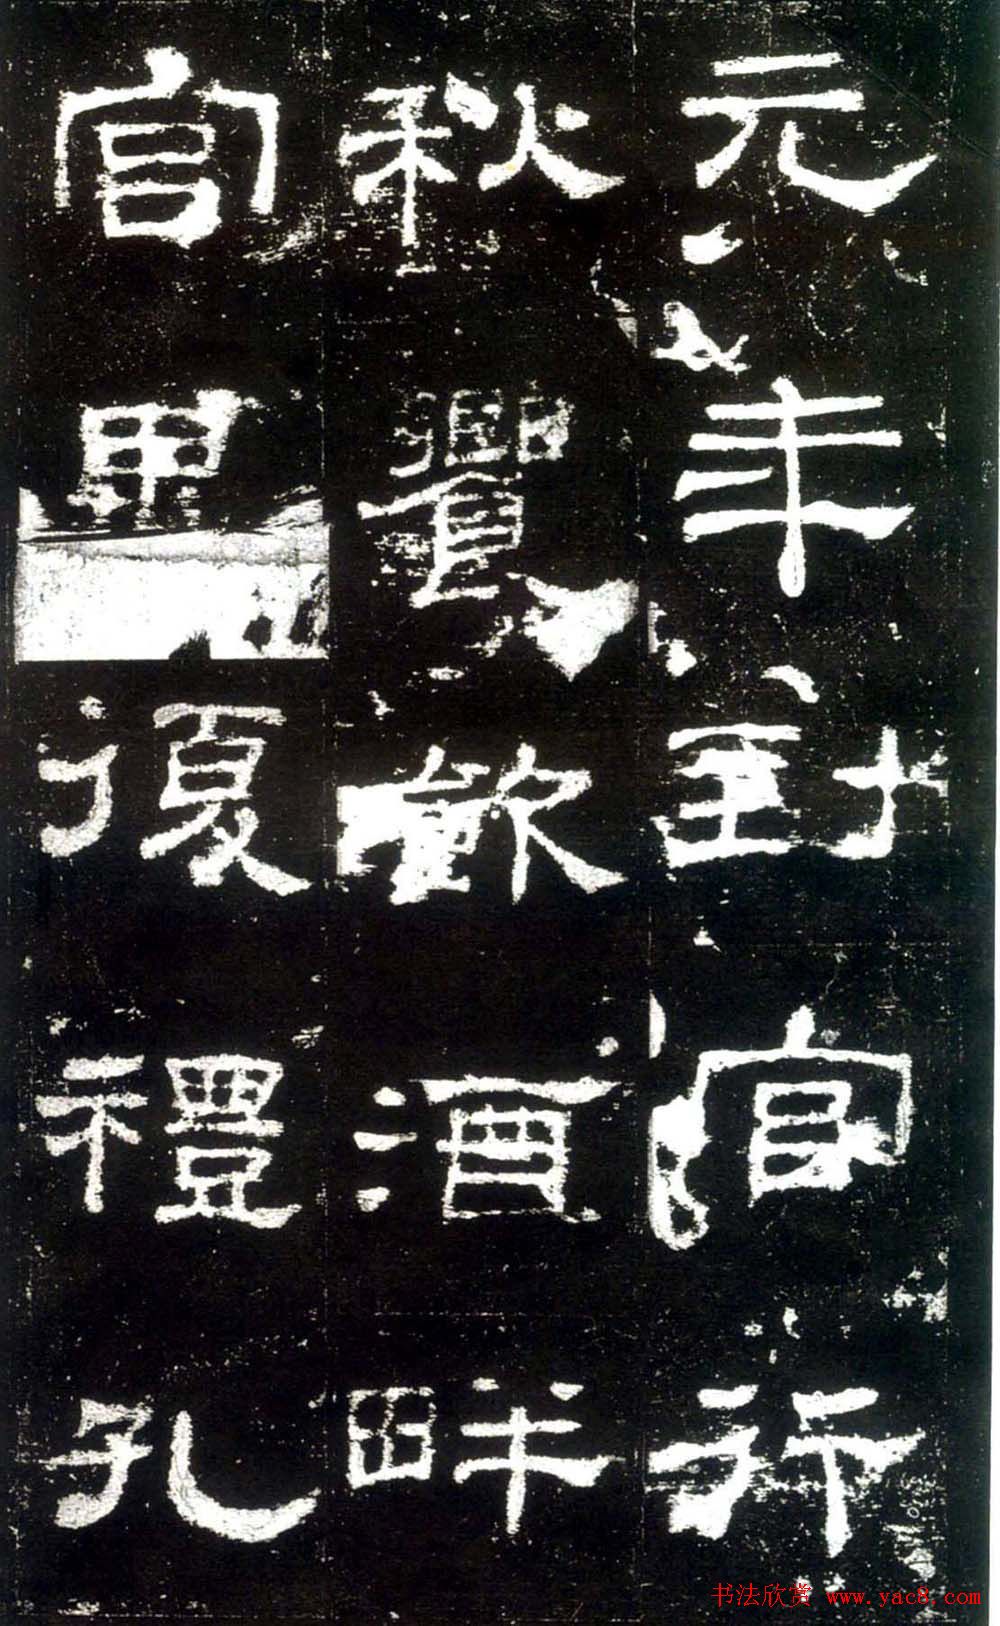 元年到官行
秋饗飲酒畔
宮畢復禮孔
书法欣赏 www.yac8.com